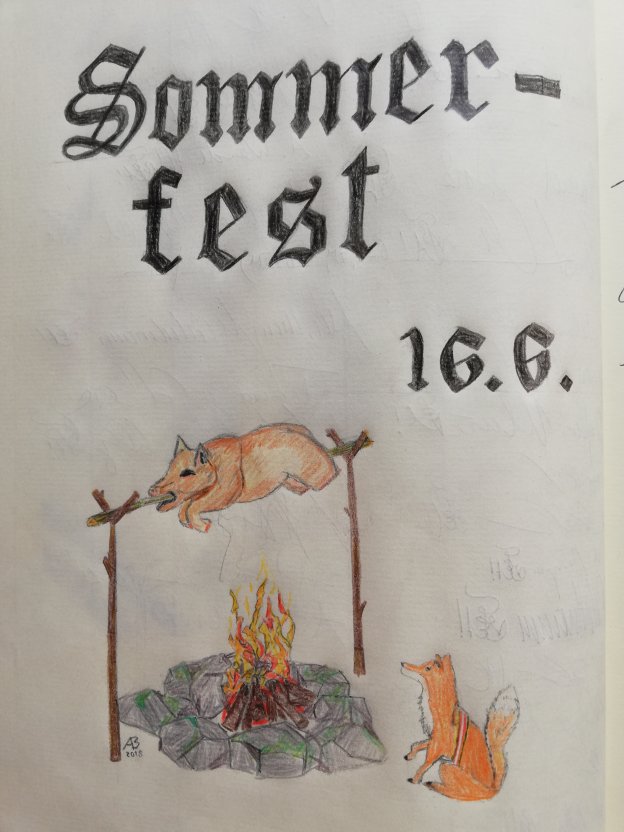 Sommer-
fest
16.6.
AB
2018